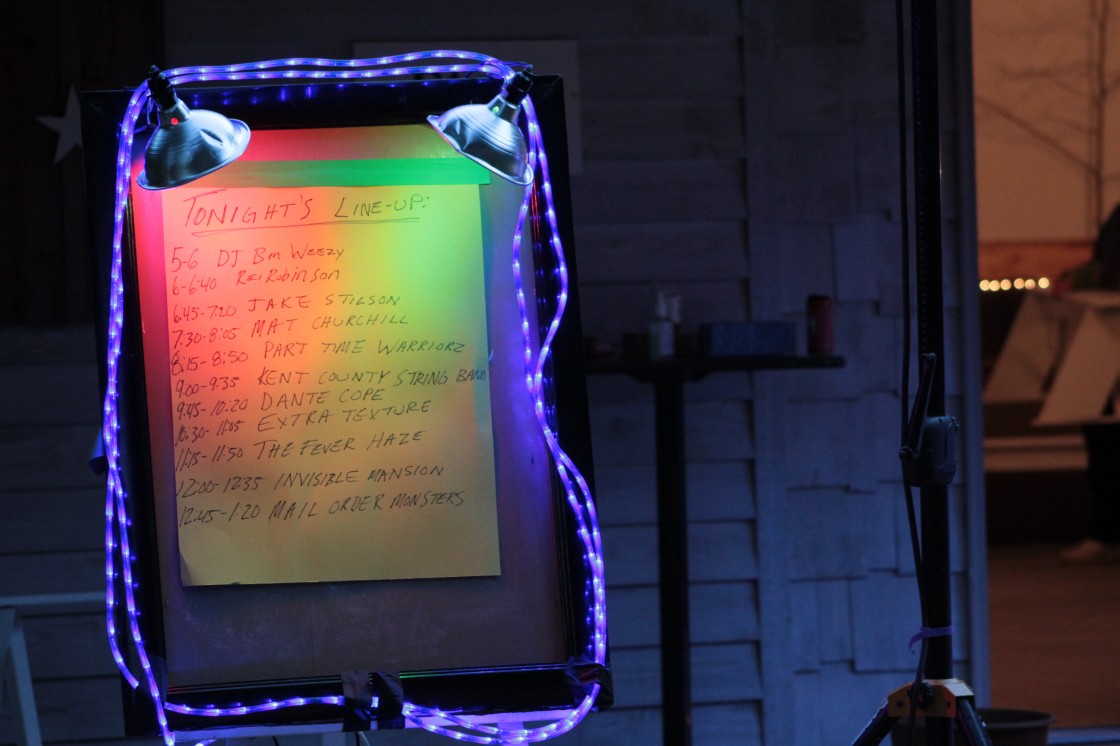 TONIGHT'S LINE-UP:
5-6 DJ Bm Weezy
6-6:40 Rei Robinson
6:45-7:20 JAKE STILSON
7:30-8:05 MAT CHURCHILL
8:15-8:50 PART TIME WARRIORZ
9:00-9:35 KENT COUNTY STRING BAND
9:45-10:20 DANTE COPE
10:30-11:05 EXTRA TEXTURE
11:15-11:50 THE FEVER HAZE
12:00-12:35 INVISIBLE MANSION
12:45-1:20 MAIL ORDER MONSTERS